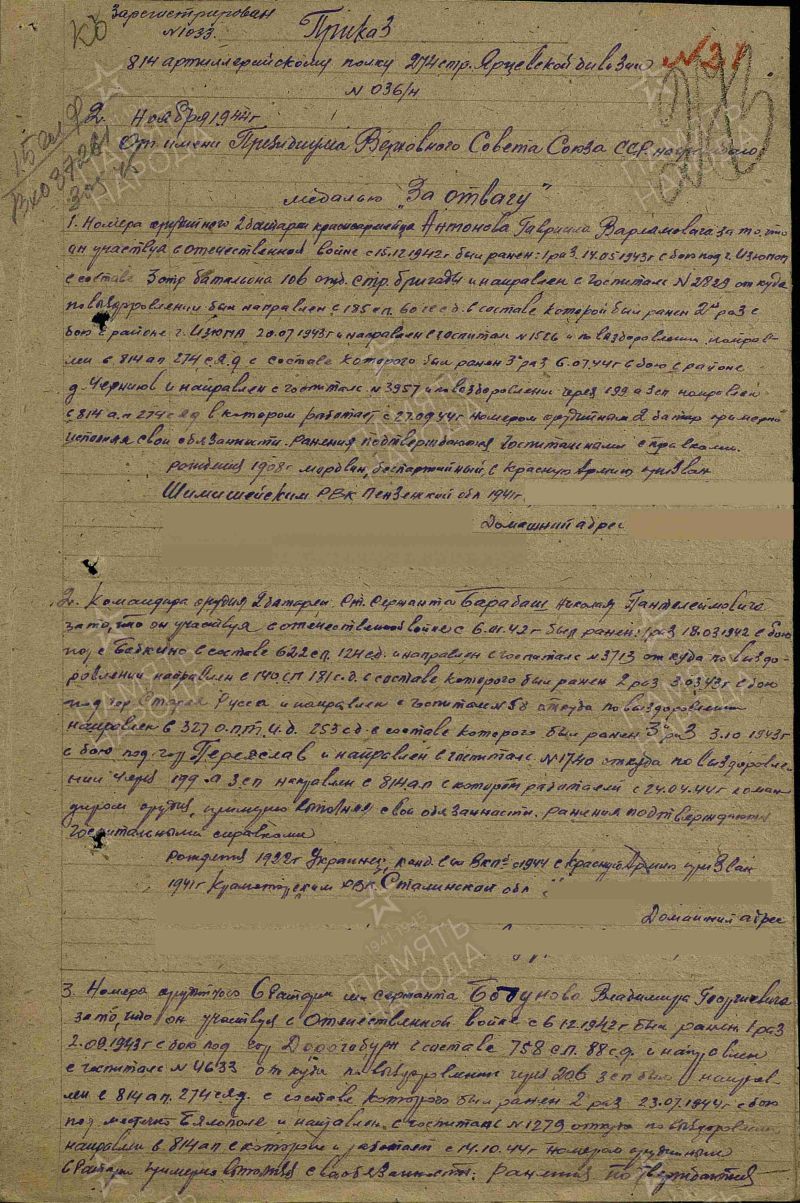 Зарегистрирован
№1033.
Приказ
814 артиллерийскому полку 274 стр. Ярцевской дивизии
№21
№ 036/н
2 ноября 1944г
От имени Президиума Верховного Совета Союза ССР награждаю
медалью "За отвагу"
1. Номера орудийного 2 батареи красноармейца Антонова Гавриила Варламовича за то, что
он участвуя в отечественной войне с 15.12.1942г был ранен: 1 раз 14.05.1943г в бою под г. Изюмом
в составе 3 отр. батальона 106 стр. бригады и направлен в госпиталь №2829 откуда
по выздоровлении был направлен в 185 сп. 60 в составе которой был ранен 2й раз в
бою в районе г. Изюма 20.07.1943г и направлен в госпиталь и по выздоровлении направ-
лен в 814 ап 274 с.Я.д в составе которого был ранен 3й раз 6.07.44г в бою в районе
д. и направлен в госпиталь №3957 и по выздоровлении через 199 азсп направлен
в 814 а.п 274 с.Я.д в котором работает с 27.09.44г номером орудийным 2 батар примерно
исполняя свои обязанности. Ранения подтверждаются госпитальными справками.
рождения 1908г мордвин, беспартийный, в Красную Армию призван
Шимишейским РВК Пензенской обл 1941г.
Домашний адрес
2. Командира орудия 2 батареи Ст. Сержанта Барабаш Николая Пантелеймовича
за то, что он участвуя в отечественной войне с 6.01.42г был ранен: 1 раз 18.03.1942 в бою
под с Бабкино в составе 622 сп. 124 сд. и направлен в госпиталь №3713 откуда по выздо-
ровлении направлен в 140 сп 181 с.д. в составе которого был ранен 2 раз 3.03.43г в бою
под гор Старая Русса и направлен в госпиталь откуда по выздоровлении
направлен в 327 о.п.т.и.д. 253 сд. в составе которого был ранен 3й раз 3.10 1943г
в бою под гор Переяслав и направлен в госпиталь №1740 откуда по выздоровле-
нии через 199 а зсп направлен в 814 ап в котором работает с 24.04.44г коман-
диром орудия, примерно выполняя свои обязанности. Ранения подтверждаются
госпитальными справками
рождения 1922г Украинец, канд. в чл ВКП с 1944 в Красную Армию призван
1941г Краматорским РВК Сталинской обл
Домашний адрес
3. Номера орудийного 6 батареи мл сержанта Владимира Георгиевича
за то, что он участвуя в Отечественной войне с 6.12.1942г был ранен 1 раз
2.09.1943г в бою под гор Дорогобуж в составе 758 с.п. 88 с.д. и направлен
в госпиталь №4633 откуда по выздоровлении через 206 зсп был направ-
лен в 814 ап. 274 с.Я.д. в составе которого был ранен 2 раз 23.07.1944г в бою
под местечко и направлен в госпиталь №1279 откуда по выздоровлении
направлен в 814 ап в котором и работает с 14.10.44г номером орудийным
6 батареи примерно выполняя свои обязанности. Ранения подтверждаются
ПАМЯТЬ НАРОДА
1941-1945